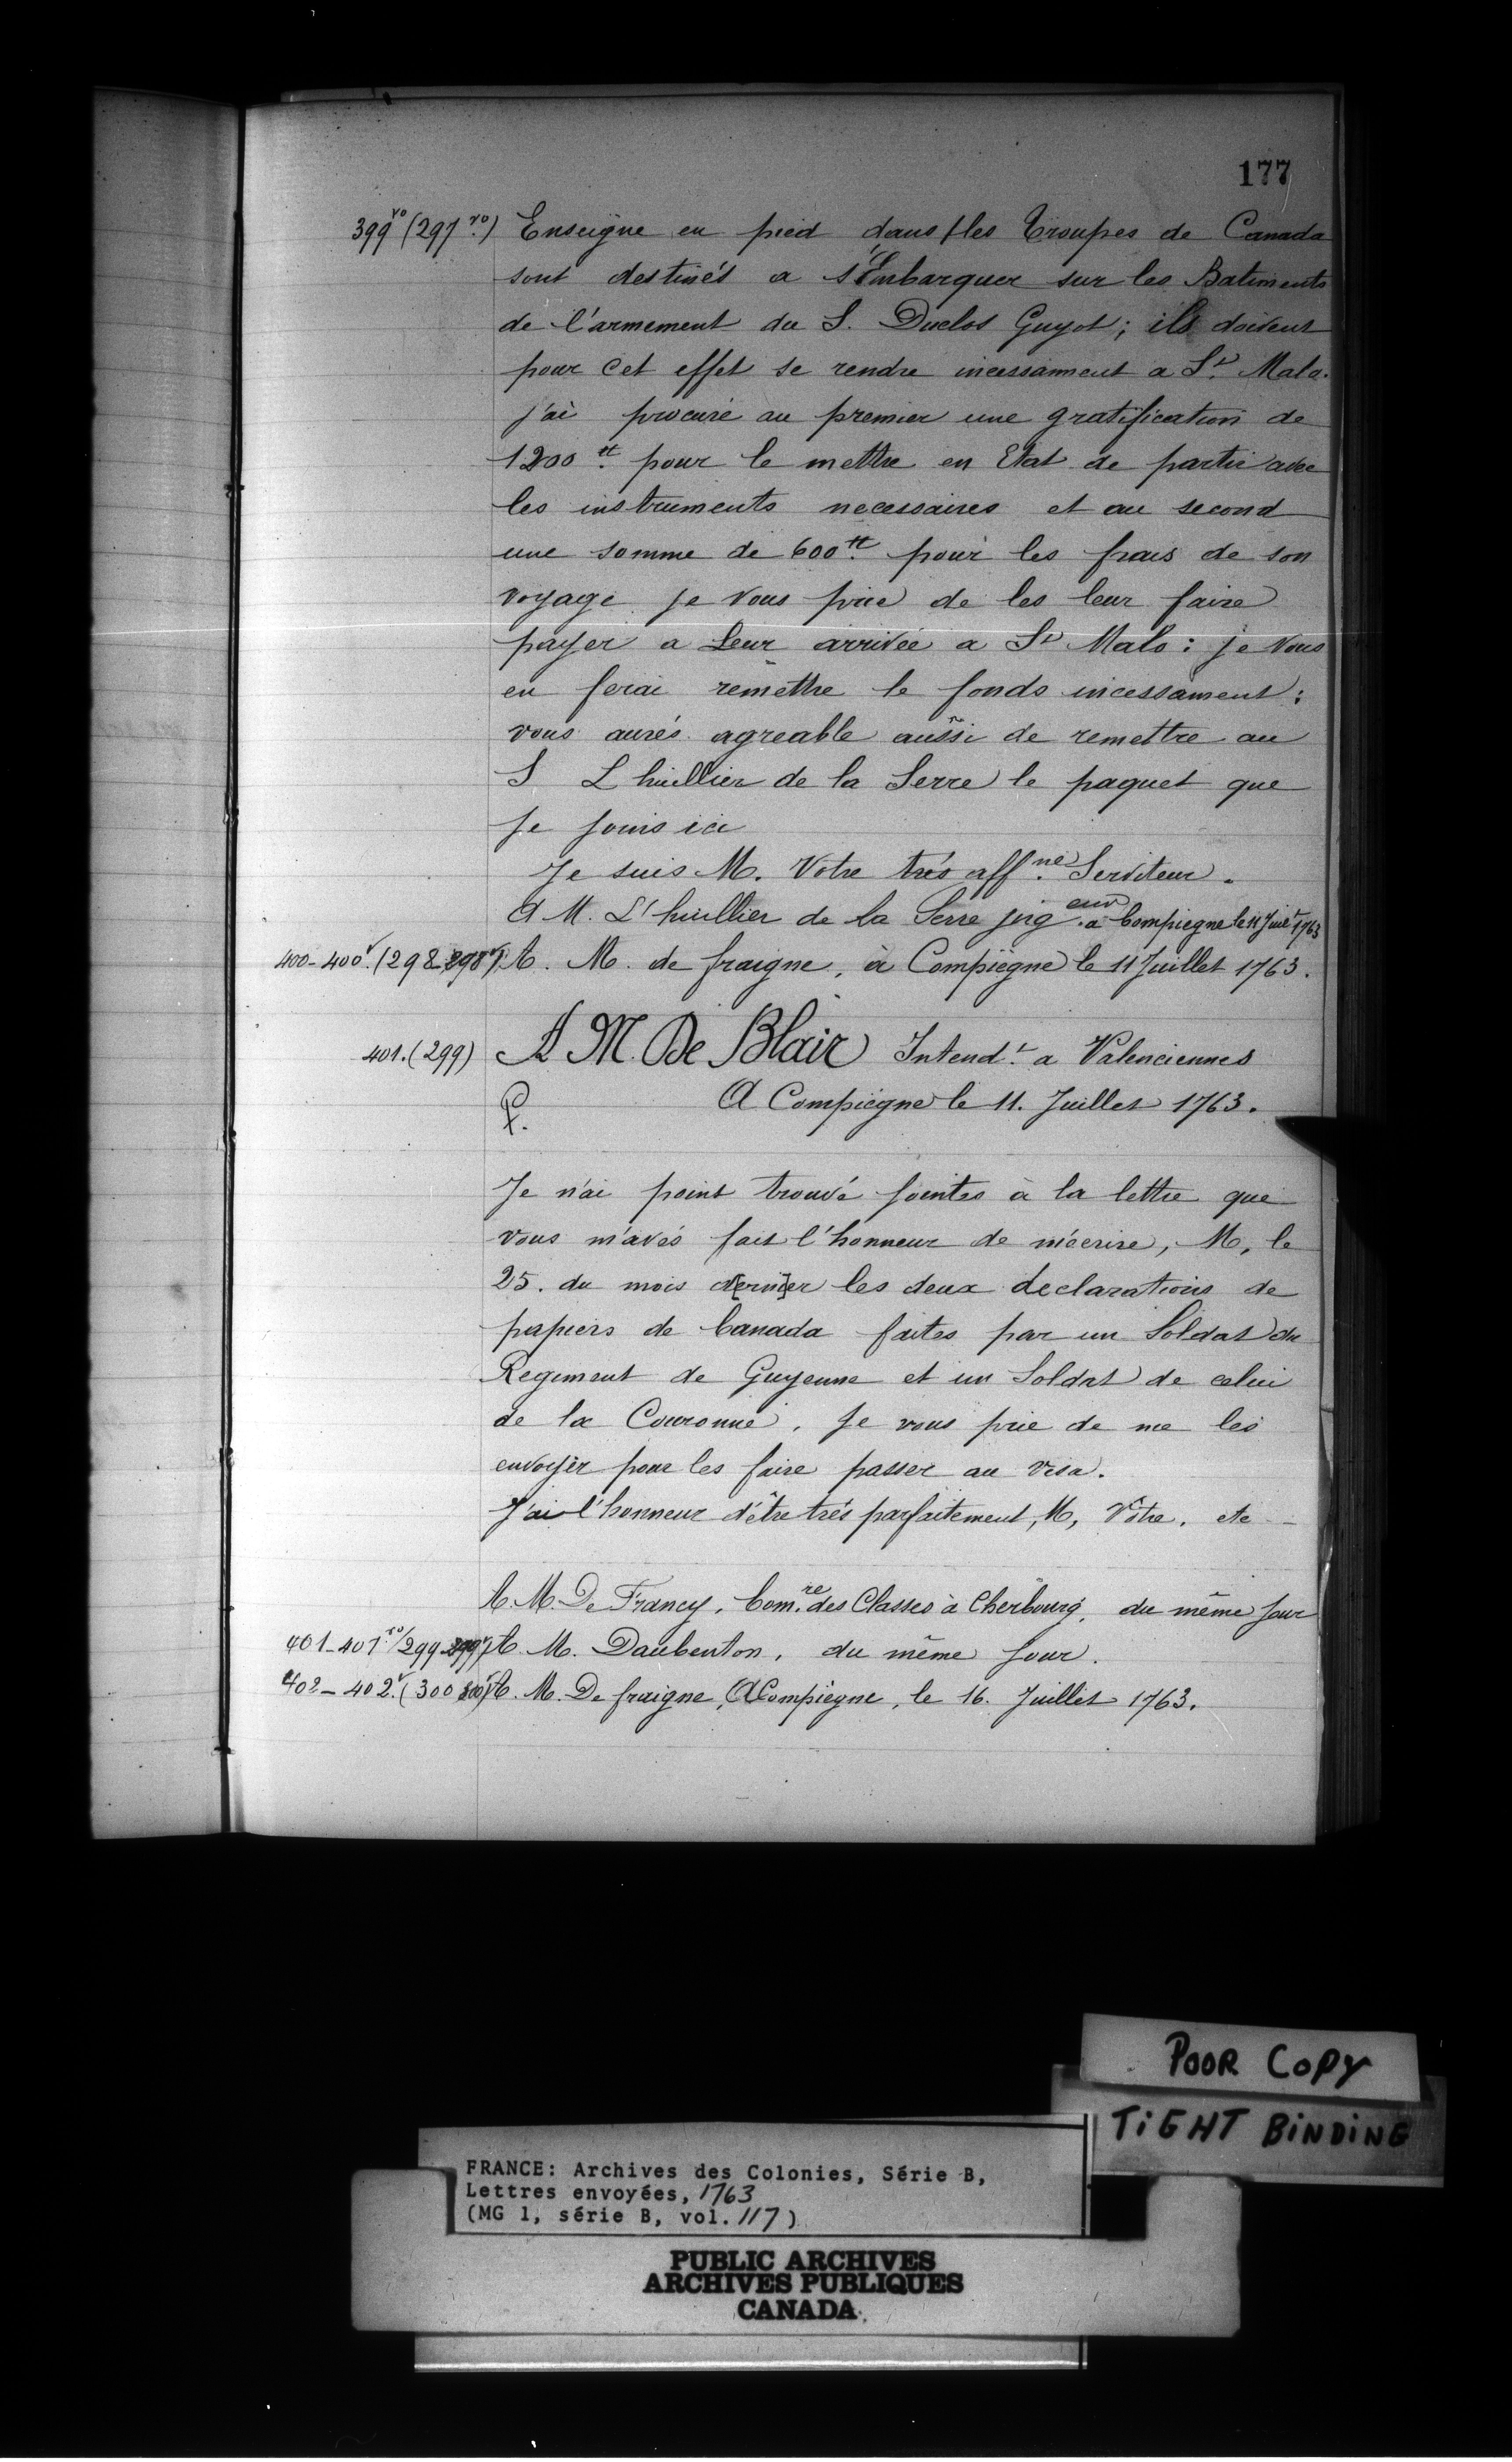 177
399 vo (297 vo.) Enseigne en pied dans les Troupes de Canada
sont destinés a s'Embarquer sur les Batiments
de l'armement du S. Duclos Guyot; ils doivent
pour cet effet se rendre incessamment a St. Malo.
j'ai procuré au premier une gratification de
1200 tt. pour le mettre en Etat de partir avec
les instruments necessaires et au second
une somme de 600 tt. pour les frais de son
voyage je vous prie de les leur faire
payer a Leur arrivée a St Malo: je vous
en ferai remettre le fonds incessament:
vous aurés agreable aussi de remettre au
S L huillier de la Serre le paquet que
je joins ici
Je suis M. Votre trés aff.né Serviteur.
A M. L'huillier de la Serre jng.eur a Compiegne le 11 Juilt 1763
400-400v. (298-298v) A. M. de fraigne, à Compiègne le 11 Juillet 1763.
401. (299) A M. De Blair Intendt. a Valenciennes
A Compiègne le 11. Juillet 1763.
Je n'ai point trouvé jointes à la lettre que
vous m'avés fait l'honneur de m'écrire, M, le
25. du mois d[erni]er les deux declarations de
papiers de Canada faites par un Soldat du
Regiment de Guyenne et un Soldat de celui
de la Couronne. Je vous prie de me les
envoyer pour les faire passer au visa.
J'ai l'honneur d'être trés parfaitement, M, Vôtre. etc
A. M. De Francy. Com.re des Classes à Cherbourg. du même jour
401-401 vo (299-299v) A. M. Daubenton. du même jour.
402-402v. (300 300v) A. M. De fraigne, A Compiègne, le 16. Juillet 1763.
POOR COPY
TIGHT BINDING
FRANCE: Archives des Colonies, Série B,
Lettres envoyées, 1763
(MG 1, série B, vol. 117)
PUBLIC ARCHIVES
ARCHIVES PUBLIQUES
CANADA